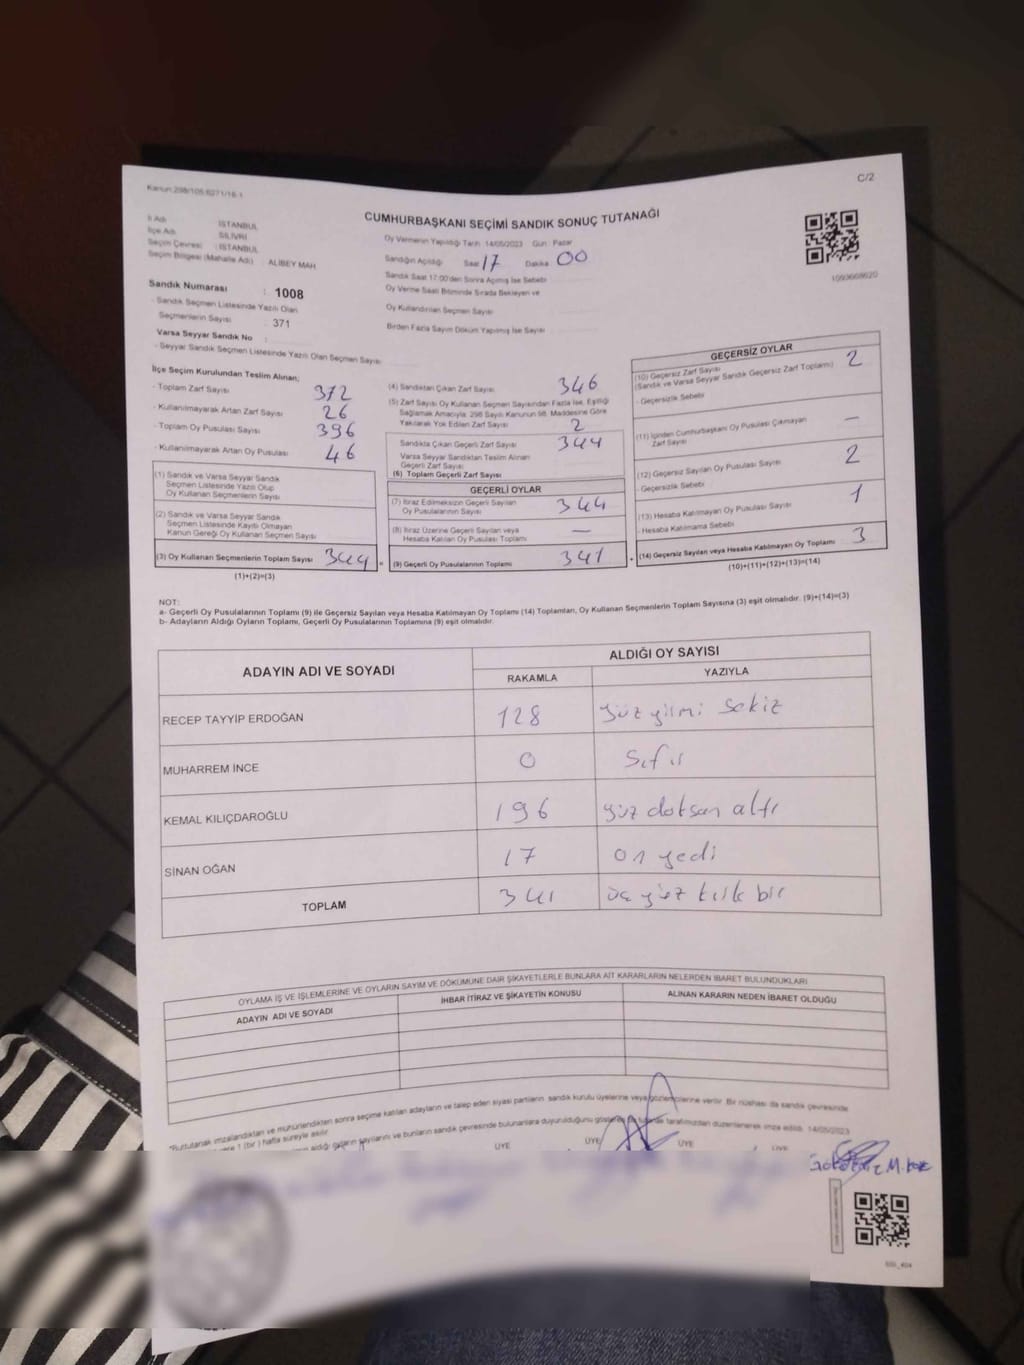 Kanun:298/105.6271/16-1
C/2
CUMHURBAŞKANI SEÇİMİ SANDIK SONUÇ TUTANAĞI
İl Adı : İSTANBUL
İlçe Adı : SİLİVRİ
Seçim Çevresi : İSTANBUL
Seçim Bölgesi (Mahalle Adı) : ALİBEY MAH
Oy Vermenin Yapıldığı Tarih 14/05/2023 Gün: Pazar
Sandığın Açıldığı Saat 17 Dakika 00
Sandık Saat 17:00'den Sonra Açılmış İse Sebebi
Oy Verme Saati Bitiminde Sırada Bekleyen ve
Oy Kullandırılan Seçmen Sayısı
Birden Fazla Sayım Döküm Yapılmış İse Sayısı
1093668620
Sandık Numarası : 1008
- Sandık Seçmen Listesinde Yazılı Olan
Seçmenlerin Sayısı : 371
Varsa Seyyar Sandık No :
- Seyyar Sandık Seçmen Listesinde Yazılı Olan Seçmen Sayısı
İlçe Seçim Kurulundan Teslim Alınan;
- Toplam Zarf Sayısı 372
- Kullanılmayarak Artan Zarf Sayısı 26
- Toplam Oy Pusulası Sayısı 396
- Kullanılmayarak Artan Oy Pusulası 46
(1) Sandık ve Varsa Seyyar Sandık
Seçmen Listesinde Yazılı Olup
Oy Kullanan Seçmenlerin Sayısı
(2) Sandık ve Varsa Seyyar Sandık
Seçmen Listesinde Kayıtlı Olmayan
Kanun Gereği Oy Kullanan Seçmen Sayısı
(3) Oy Kullanan Seçmenlerin Toplam Sayısı 344
(1)+(2)=(3)
(4) Sandıktan Çıkan Zarf Sayısı 346
(5) Zarf Sayısı Oy Kullanan Seçmen Sayısından Fazla İse, Eşitliği
Sağlamak Amacıyla 298 Sayılı Kanunun 98. Maddesine Göre
Yakılarak Yok Edilen Zarf Sayısı 2
Sandıkta Çıkan Geçerli Zarf Sayısı 344
Varsa Seyyar Sandıktan Teslim Alınan
Geçerli Zarf Sayısı
(6) Toplam Geçerli Zarf Sayısı
GEÇERLİ OYLAR
(7) İtiraz Edilmeksizin Geçerli Sayılan
Oy Pusulalarının Sayısı 344
(8) İtiraz Üzerine Geçerli Sayılan veya
Hesaba Katılan Oy Pusulası Toplamı —
(9) Geçerli Oy Pusulalarının Toplamı 341
GEÇERSİZ OYLAR
(10) Geçersiz Zarf Sayısı 2
(Sandık ve Varsa Seyyar Sandık Geçersiz Zarf Toplamı)
- Geçersizlik Sebebi
(11) İçinden Cumhurbaşkanı Oy Pusulası Çıkmayan
Zarf Sayısı —
(12) Geçersiz Sayılan Oy Pusulası Sayısı 2
- Geçersizlik Sebebi
(13) Hesaba Katılmayan Oy Pusulası Sayısı 1
- Hesaba Katılmama Sebebi
(14) Geçersiz Sayılan veya Hesaba Katılmayan Oy Toplamı 3
(10)+(11)+(12)+(13)=(14)
NOT:
a- Geçerli Oy Pusulalarının Toplamı (9) ile Geçersiz Sayılan veya Hesaba Katılmayan Oy Toplamı (14) Toplamları, Oy Kullanan Seçmenlerin Toplam Sayısına (3) eşit olmalıdır. (9)+(14)=(3)
b- Adayların Aldığı Oyların Toplamı, Geçerli Oy Pusulalarının Toplamına (9) eşit olmalıdır.
ADAYIN ADI VE SOYADI ALDIĞI OY SAYISI
RAKAMLA YAZIYLA
RECEP TAYYİP ERDOĞAN 128 yüz yilmi sekiz
MUHARREM İNCE 0 Sıfır
KEMAL KILIÇDAROĞLU 196 yüz doksan altı
SİNAN OĞAN 17 on yedi
TOPLAM 341 üç yüz kırk bir
OYLAMA İŞ VE İŞLEMLERİNE VE OYLARIN SAYIM VE DÖKÜMÜNE DAİR ŞİKAYETLERLE BUNLARA AİT KARARLARIN NELERDEN İBARET BULUNDUKLARI
ADAYIN ADI VE SOYADI İHBAR İTİRAZ VE ŞİKAYETİN KONUSU ALINAN KARARIN NEDEN İBARET OLDUĞU
imzalandıktan ve mühürlendikten sonra seçime katılan adayların ve talep eden siyasi partilerin sandık kurulu üyelerine veya gözlemcilerine verilir. Bir nüshası da sandık çevresinde
1 (bir) hafta süreyle asılır.
aldığı oyların sayılarını ve bunların sandık çevresinde bulunanlara duyurulduğunu tarafımızdan düzenlenerek imza edildi. 14/05/2023
ÜYE ÜYE ÜYE ÜYE